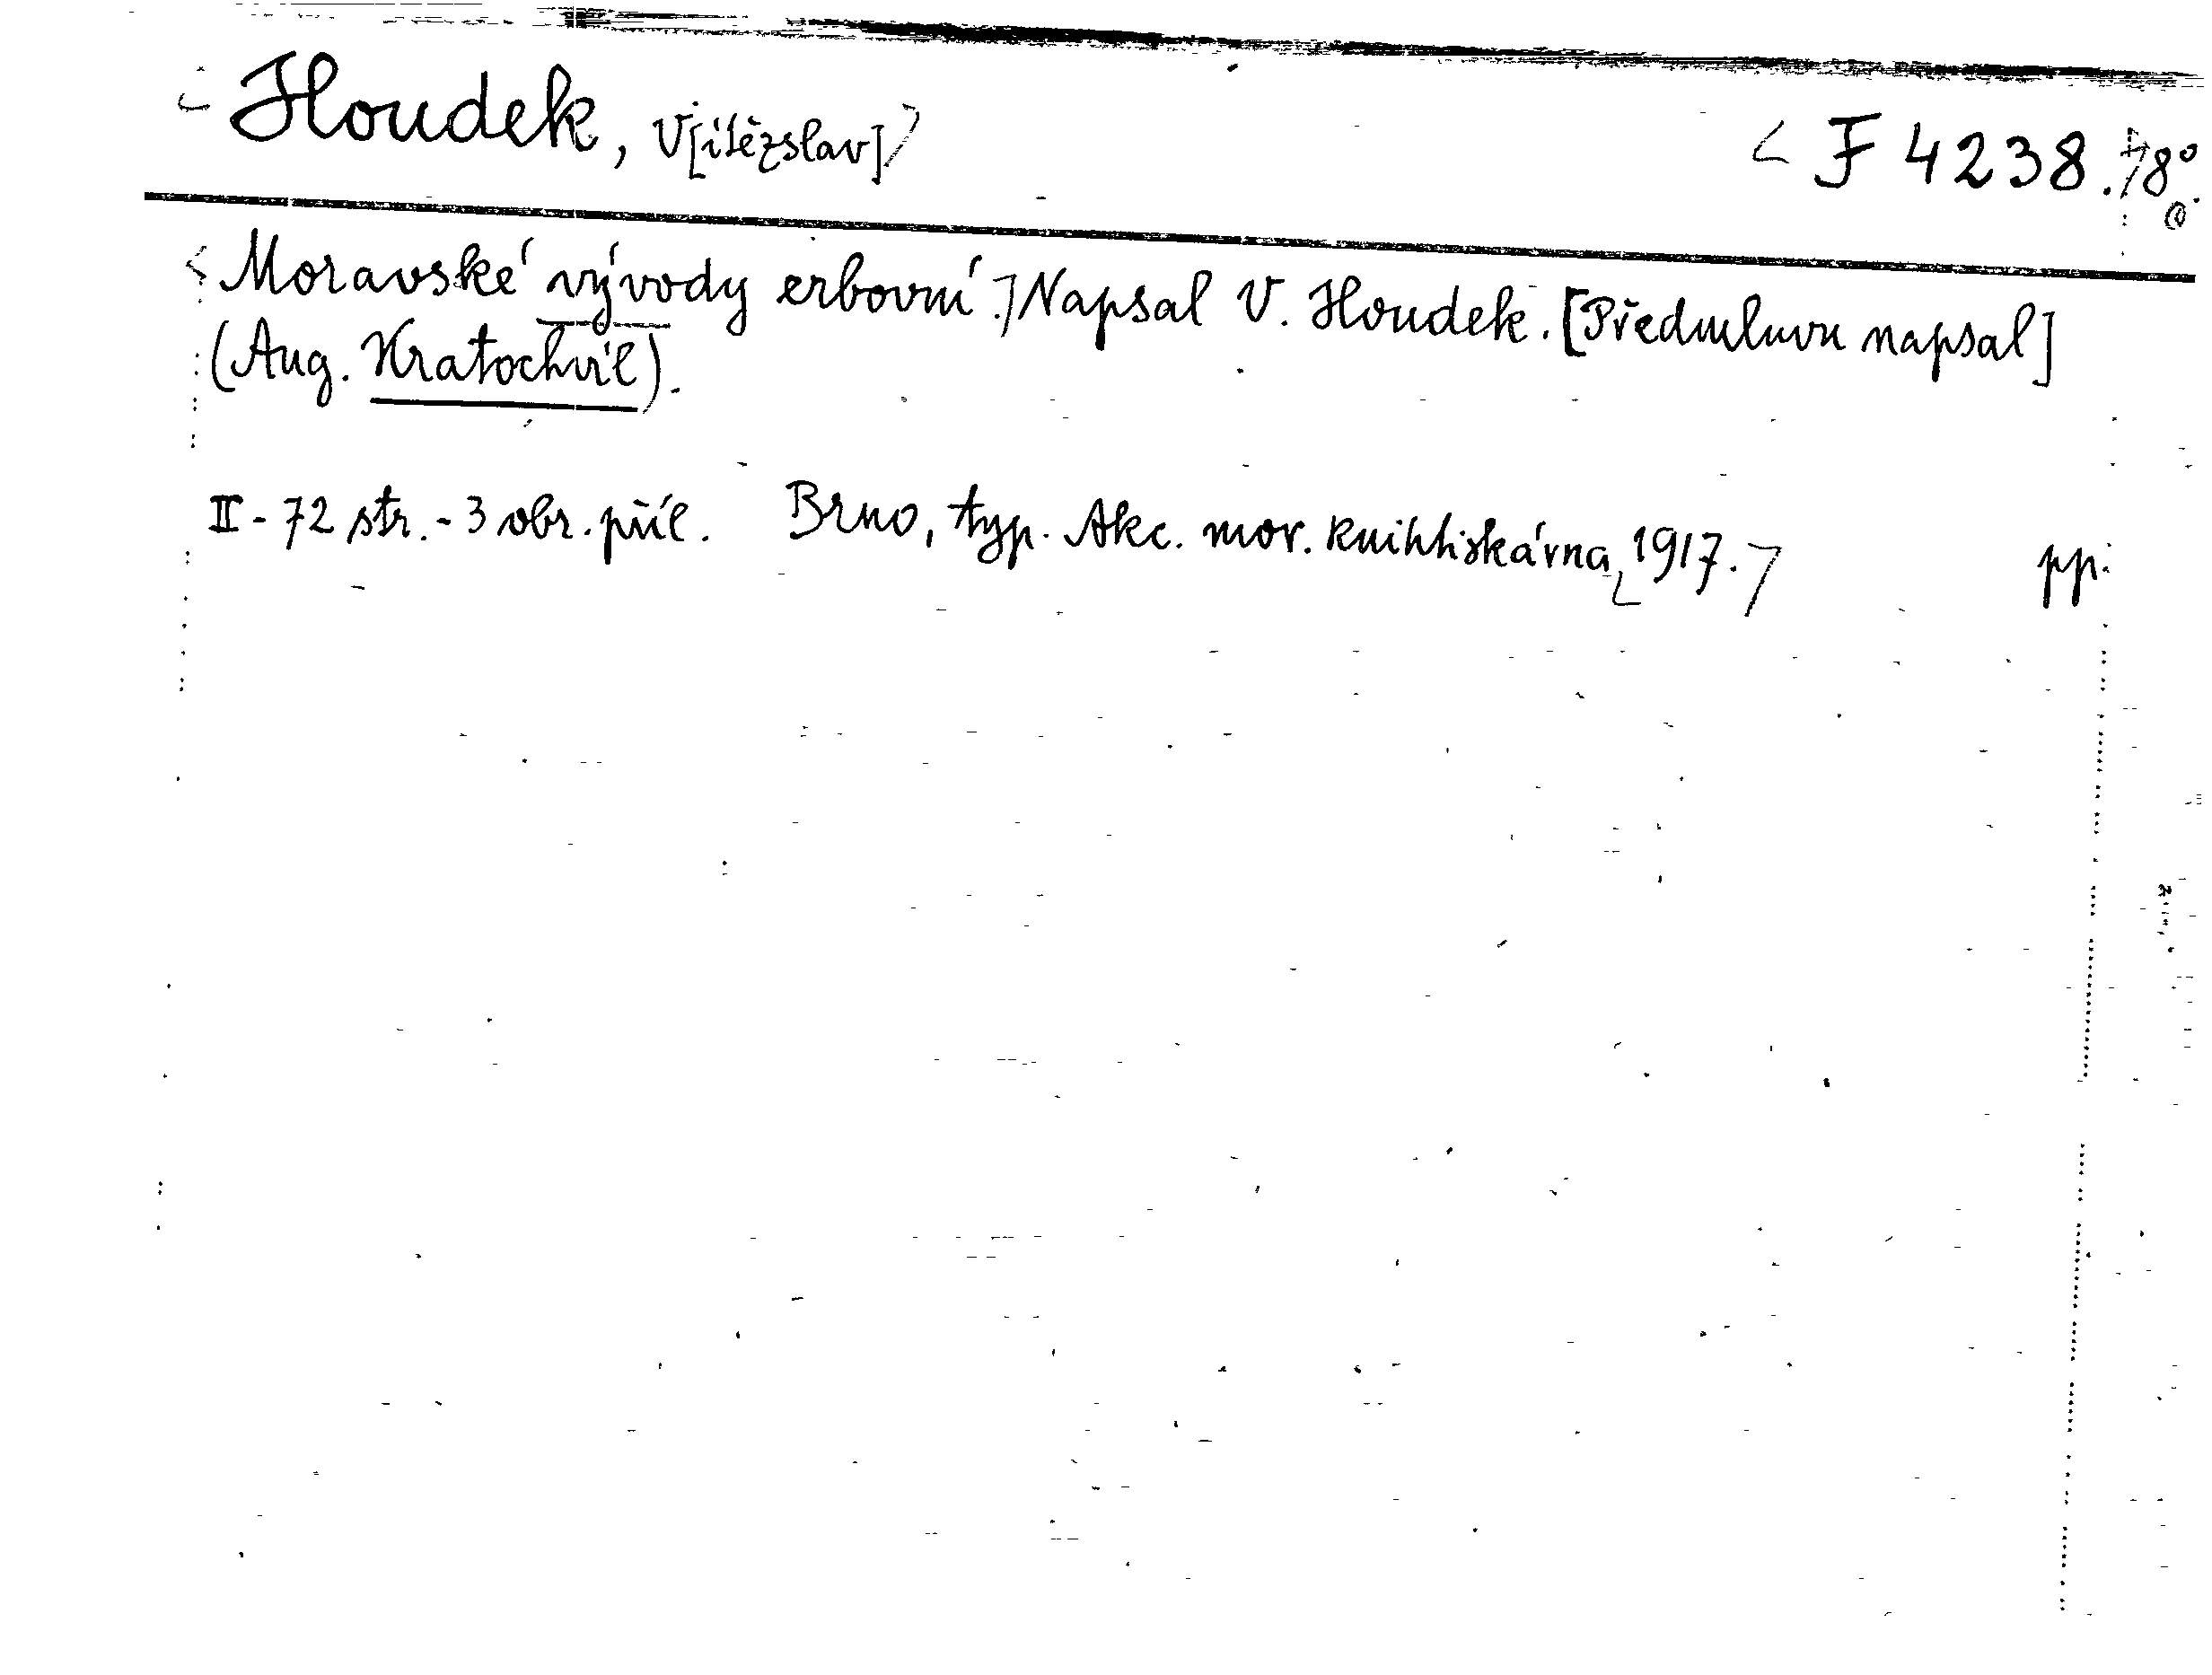 Houdek, V[ítězslav] F 4238. 8°
Moravské vývody erbovní. Napsal V. Houdek. [Předmluvu napsal]
(Aug. Kratochvíl).
II - 72 str. - 3 obr. příl. Brno, typ. Akc. mor. knihtiskárna, 1917. pp.